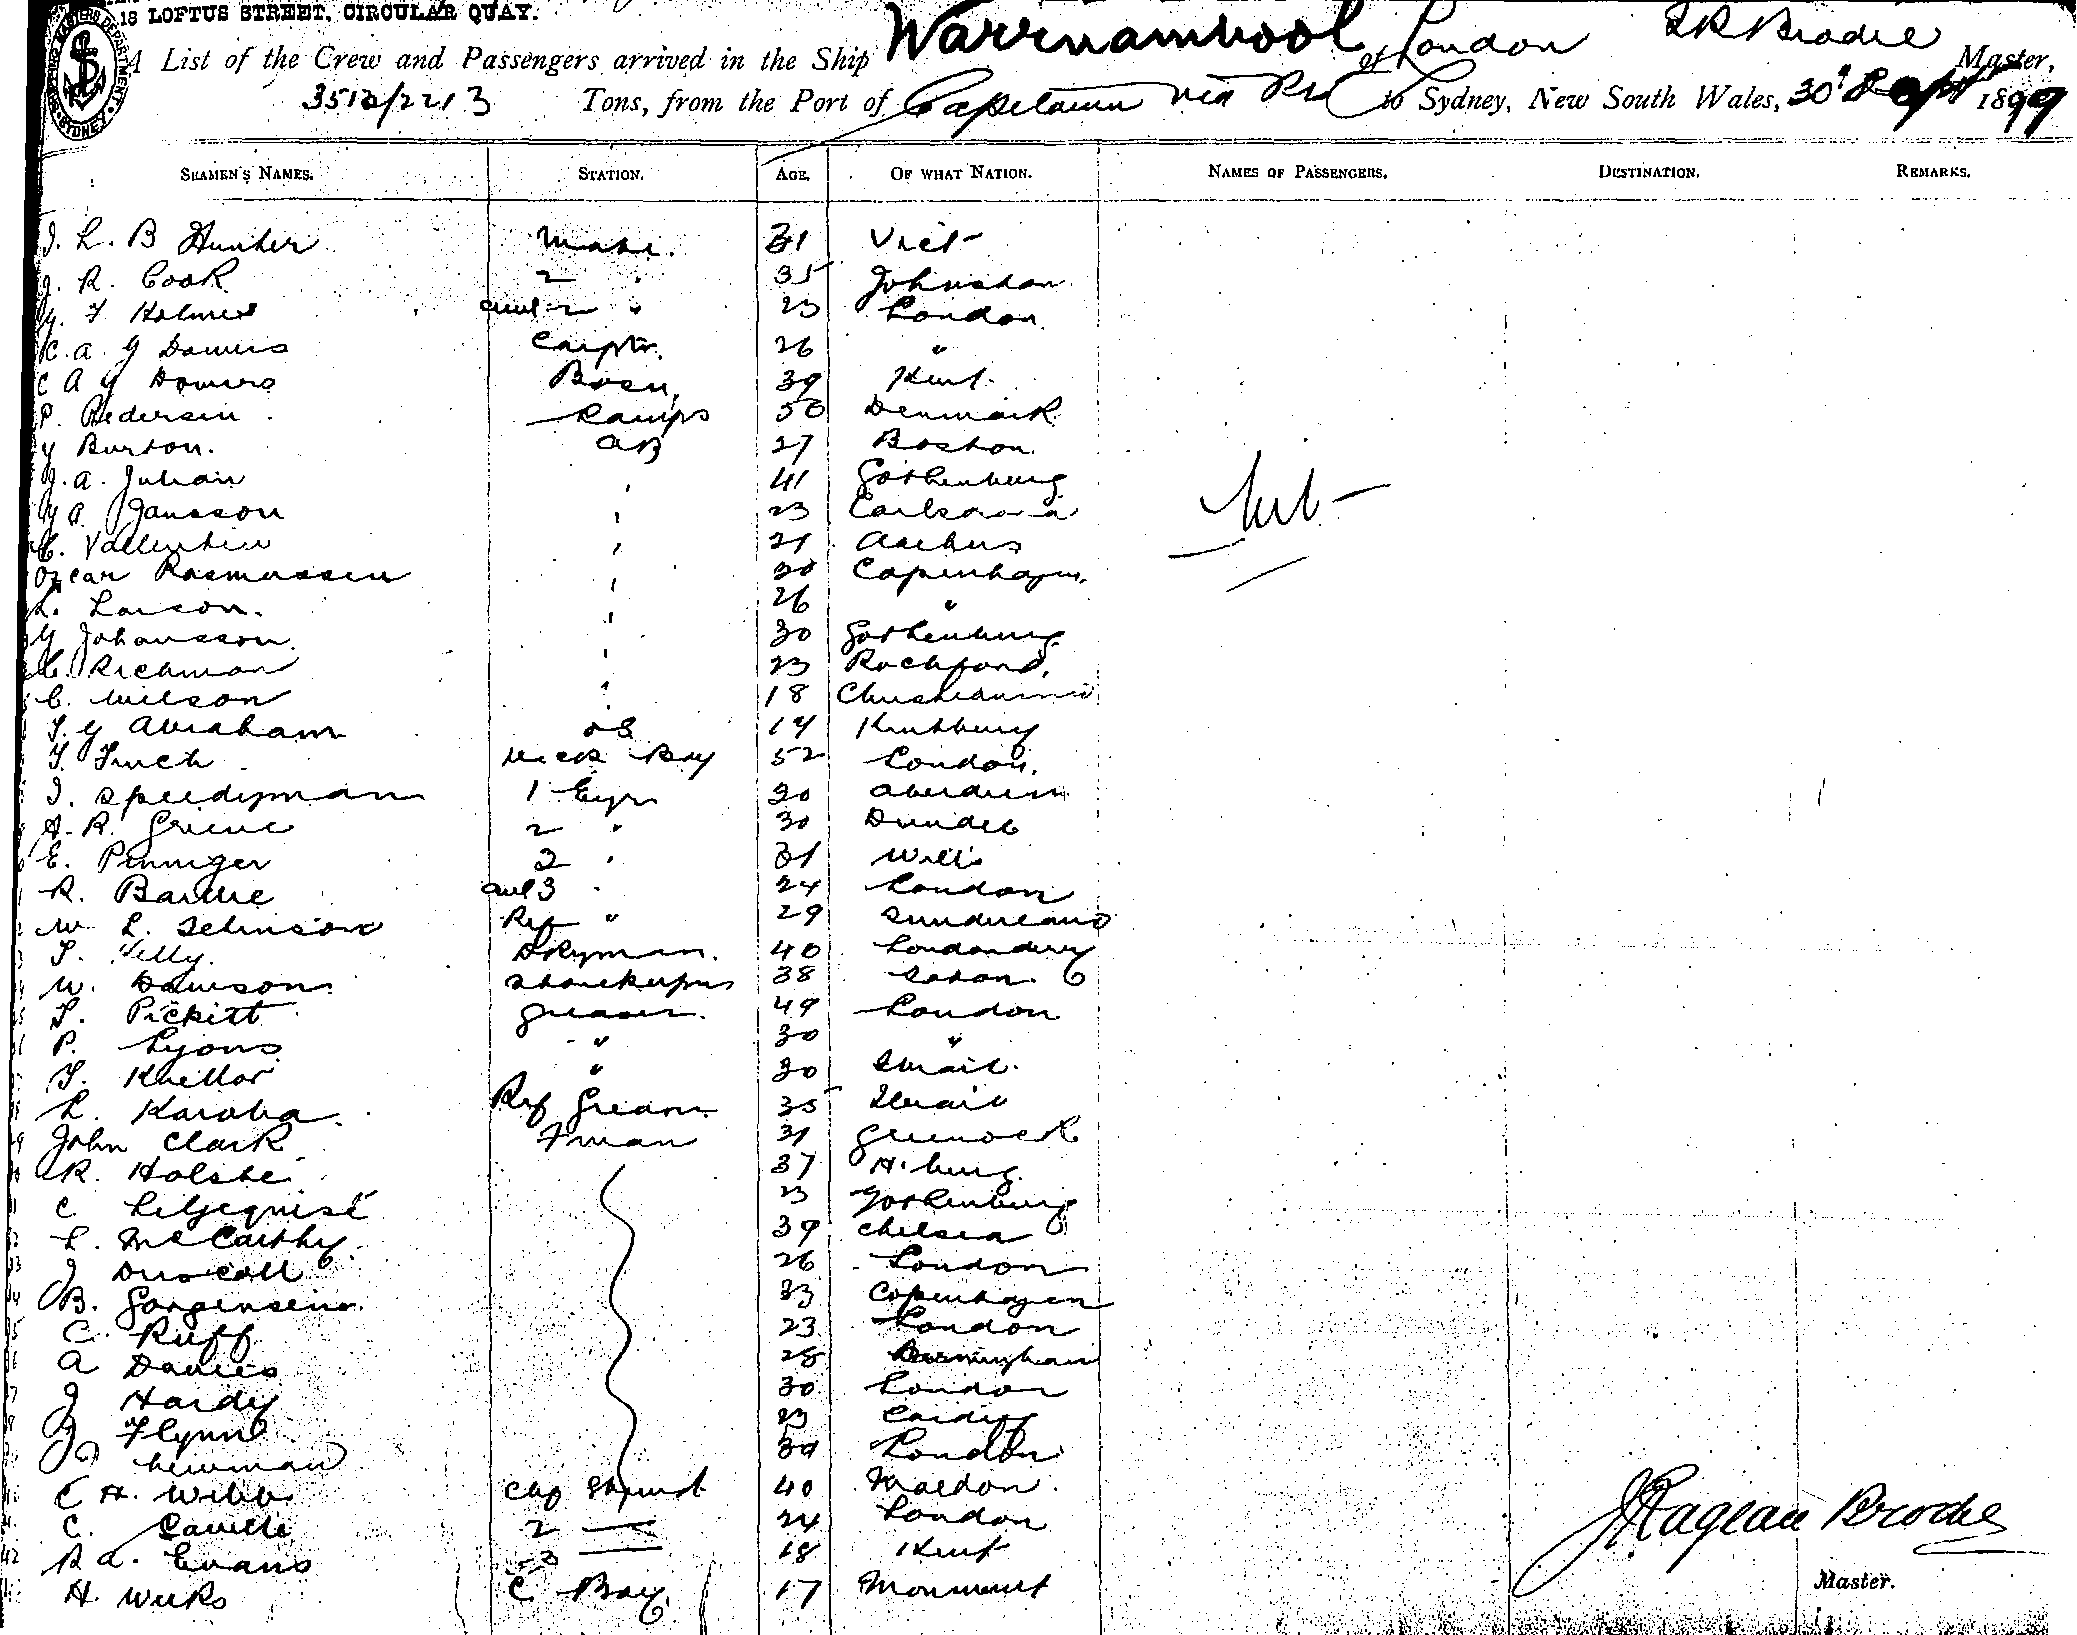 18 LOFTUS STREET, CIRCULAR QUAY.
A List of the Crew and Passengers arrived in the Ship Warrnambool of London J R Brodie Master,
3513/2213 Tons, from the Port of Capetown via to Sydney, New South Wales, 30 Sept 1899
SEAMEN'S NAMES. STATION. AGE. OF WHAT NATION. NAMES OF PASSENGERS. DESTINATION. REMARKS.
J. L. B Hunter Mate. 31 Vict
R. Cook 2 " 35 Johnston
Holmes 2 " 23 London
Carptr. 26 "
C A G Bosn, 39 Kent
P. Pedersen Lamps 50 Denmark
Burton. AB 27 Boston
J. A. Julian ' 41 Gothenburg
Jansson ' 23
Vallentin ' 21 Aarhus
Rasmussen ' 30 Copenhagen
L. Larson. ' 26 "
Johansson. ' 30 Gothenburg
C. Richman ' 23 Rochford,
C. Wilson ' 18 Christiania
Abraham OS 19 Kintbury
T. Finch Deck Boy 52 London.
J. Speedyman 1 Engr 30 Aberdeen
A. R. Greene 2 " 30 Dundee
E. Pinniger 3 " 31 Wilts
R. 3 " 24 London
W. L. Ref " 29 Sunderland
Dkyman. 40 Londonderry
W. Dawson Storekeeper 38
T. Pickitt Greaser. 49 London
P. Lyons " 30 "
T. Knellor " 30
L. Karoba. Ref Greaser 35
John Clark Fman 31 Greenock
R. Holste 37 H.burg
C Liljequist 23 Gothenburg
L. McCarthy 39 Chelsea
J Driscoll 26 London
B. Gorgensen. 33 Copenhagen
C. Ruff 23 London
A Davies 28 Birmingham
J Hardy 30 London
J Flynn 23 Cardiff
Newman London
C H. Webb Chf Steward 40 Maldon.
C. 2 — 24 London
R A. Evans 3 — 18 Kent
H. Weeks C Boy. 17 Monument
J Raglan Brodie
Master.